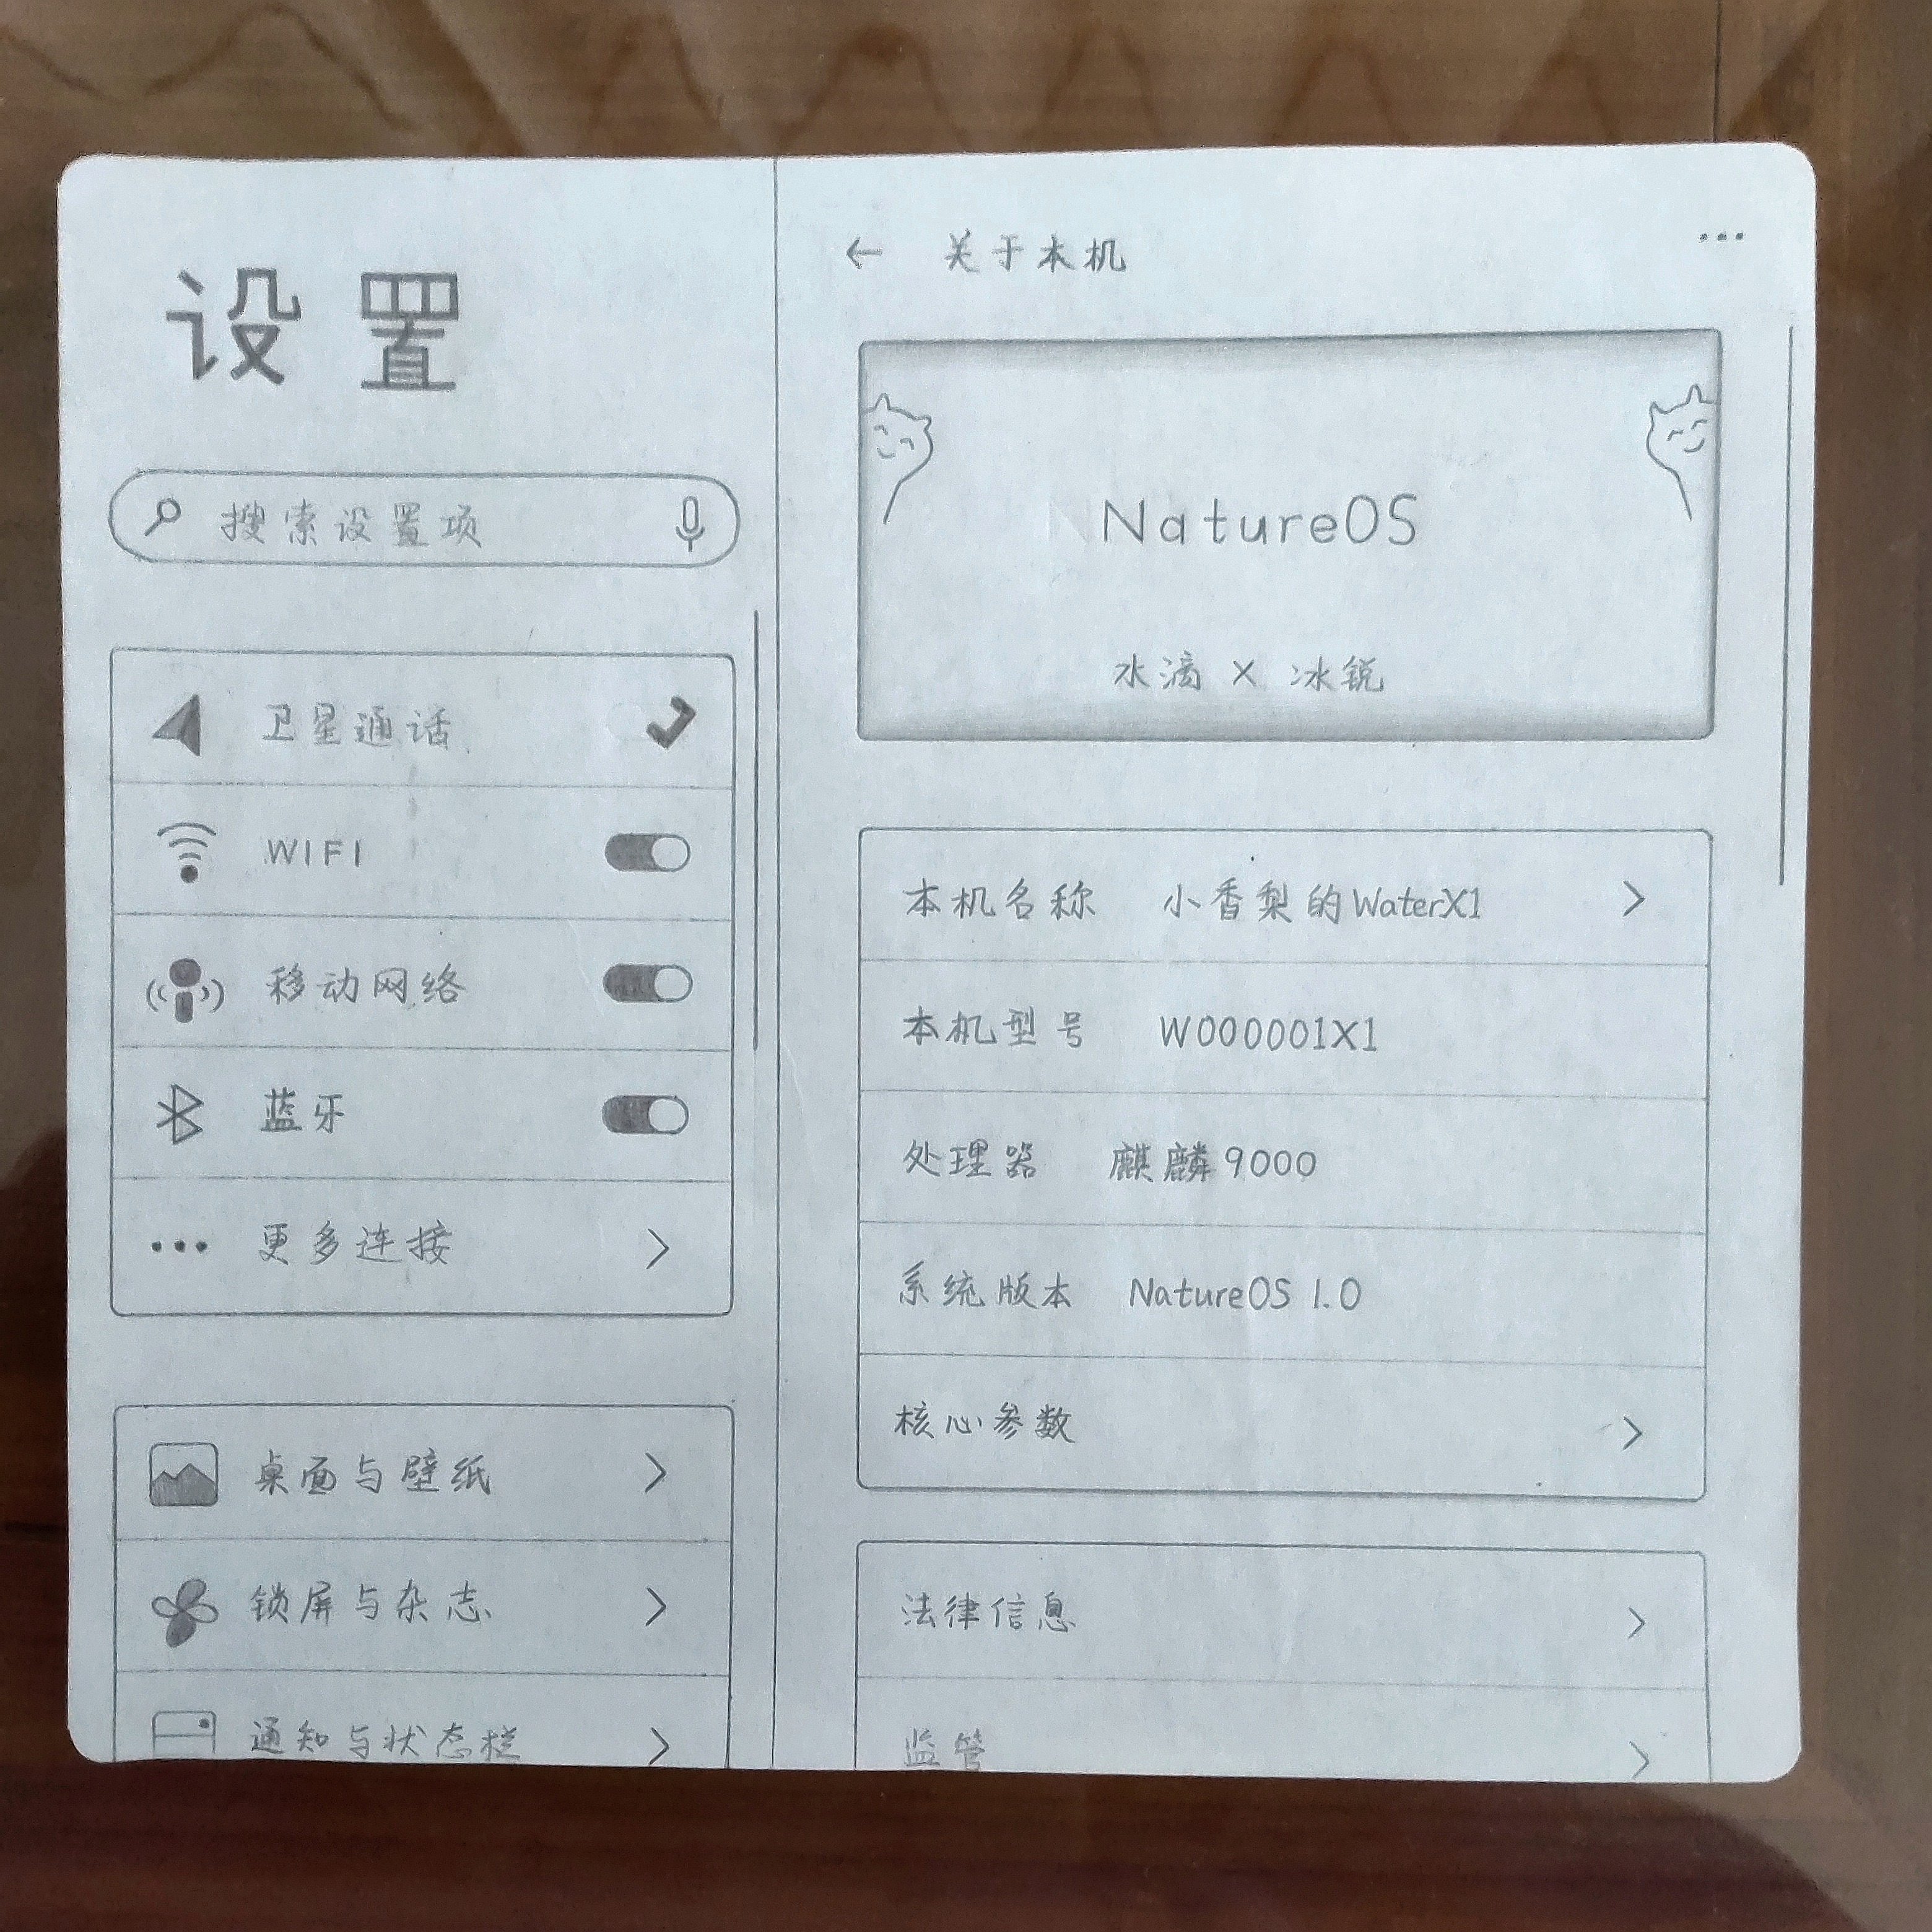 设置
搜索设置项
卫星通话
WIFI
移动网络
蓝牙
更多连接
桌面与壁纸
锁屏与杂志
通知与状态栏
关于本机
NatureOS
水滴 X 冰锐
本机名称 小香梨的WaterX1
本机型号 W000001X1
处理器 麒麟9000
系统版本 NatureOS 1.0
核心参数
法律信息
监管